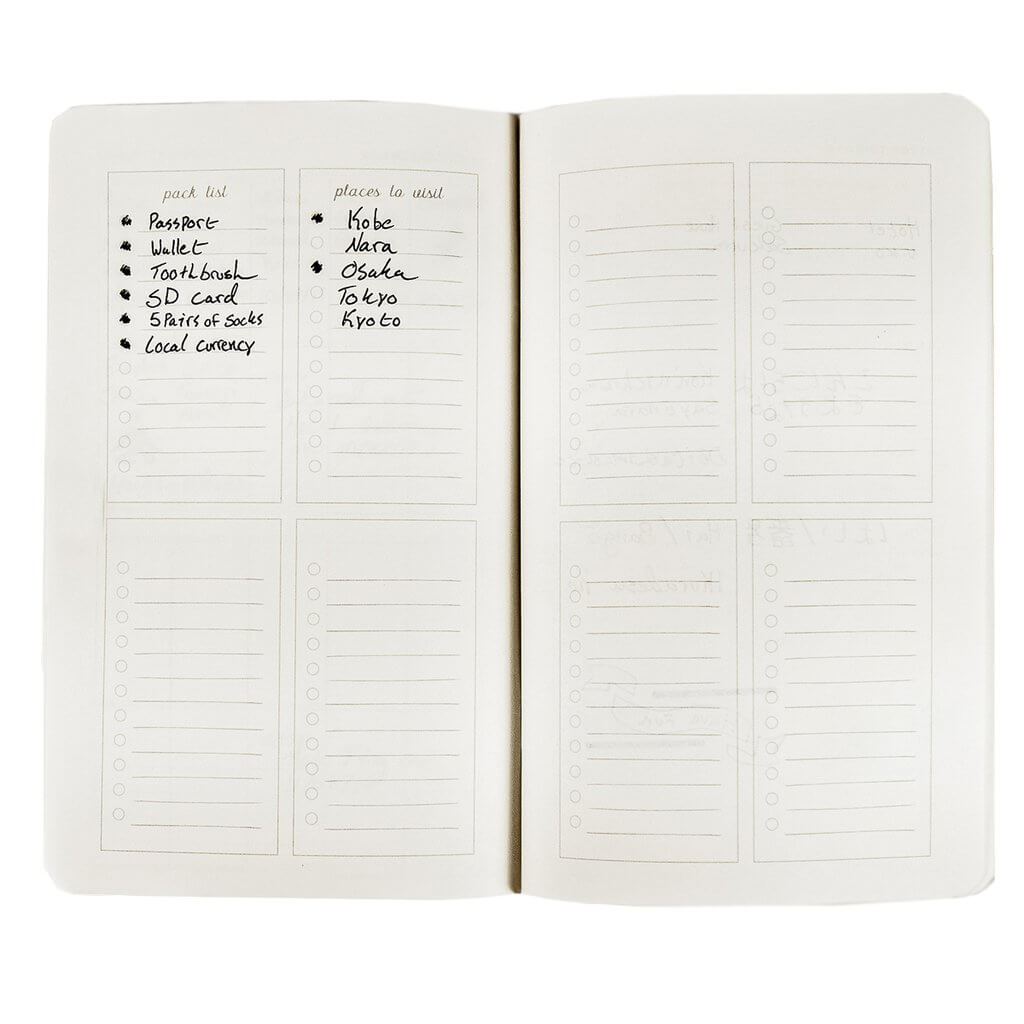 pack list
Passport
Wallet
Toothbrush
SD card
5 Pairs of Socks
Local currency
places to visit
Kobe
Nara
Osaka
Tokyo
Kyoto